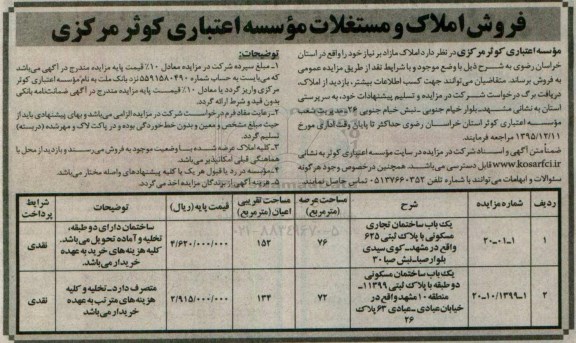 فروش املاک و مستغلات مؤسسه اعتباری کوثر مرکزی
مؤسسه اعتباری کوثر مرکزی در نظر دارد املاک مازاد بر نیاز خود را واقع در استان
خراسان رضوی به شرح ذیل با وضع موجود و با شرایط نقد از طریق مزایده عمومی
به فروش برساند. متقاضیان می‌توانند جهت کسب اطلاعات بیشتر، بازدید از املاک،
دریافت برگ درخواست شرکت در مزایده و تسلیم پیشنهادات خود، به سرپرستی
استان به نشانی مشهد_بلوار خیام جنوبی _نبش خیام جنوبی ۲۴_مدیریت شعب
مؤسسه اعتباری کوثر استان خراسان رضوی حداکثر تا پایان وقت اداری مورخ
۱۳۹۵/۱۲/۱۱ مراجعه فرمایند.
ضمناً متن آگهی و اسناد شرکت در مزایده در سایت مؤسسه اعتباری کوثر به نشانی
www.kosarfci.ir قابل دسترسی می‌باشد. همچنین در خصوص وجود هر گونه
سئوالات و ابهامات می‌توانند با شماره تلفن ۰۵۱۳۷۶۶۰۳۵۲ تماس حاصل نمایند.
توضیحات:
۱_ مبلغ سپرده شرکت در مزایده معادل ۱۰٪ قیمت پایه مزایده مندرج در آگهی می‌باشد
که می‌بایست به حساب شماره ۵۵۹۱۵۸۰۴۹۰ نزد بانک ملت به نام مؤسسه اعتباری کوثر
مرکزی واریز گردد یا معادل ۱۰٪ قیمت پایه مزایده مندرج در آگهی ضمانت‌نامه بانکی
بدون قید و شرط ارائه گردد.
۲_رعایت مفاد فرم درخواست شرکت در مزایده الزامی می‌باشد و بهای پیشنهادی باید از
حیث مبلغ مشخص و معین و بدون خط‌خوردگی بوده و در پاکت لاک و مهرشده (دربسته)
تسلیم گردد.
۳_کلیه املاک عرضه شده با وضعیت موجود به فروش می‌رسند و بازدید از محل با
هماهنگی قبلی امکانپذیر می‌باشد.
۴_مؤسسه در رد یا قبول هر یک یا کلیه پیشنهادهای واصله مختار می‌باشد.
۵_ هزینه آگهی از برندگان مزایده اخذ می‌گردد.
ردیف شماره مزایده شرح مساحت عرصه (مترمربع) مساحت تقریبی اعیان (مترمربع) قیمت پایه (ریال) توضیحات شرایط پرداخت
۱ ۱_۰۱_۲۰ یک باب ساختمان تجاری مسکونی با پلاک ثبتی ۶۲۵ واقع در مشهد_ کوی سیدی بلوار صبا_نبش صبا ۳۰ ۷۶ ۱۵۲ ۲/۶۲۰/۰۰۰/۰۰۰ ساختمان دارای دو طبقه، تخلیه و آماده تحویل می‌باشد. کلیه هزینه‌های خرید به عهده خریدار می‌باشد. نقدی
۲ ۱_۱۰/۱۳۹۹_۲۰ یک باب ساختمان مسکونی دو طبقه با پلاک ثبتی ۱۱۳۹۹_ منطقه ۱۰ مشهد واقع در خیابان عبادی _عبادی ۶۳ پلاک ۲۶ ۷۲ ۱۳۴ ۲/۹۱۵/۰۰۰/۰۰۰ متصرف دارد_تخلیه و کلیه هزینه‌های مترتب به عهده خریدار می‌باشد نقدی
۰۲۱-۸۸۳۴۹۶۷۰-۵